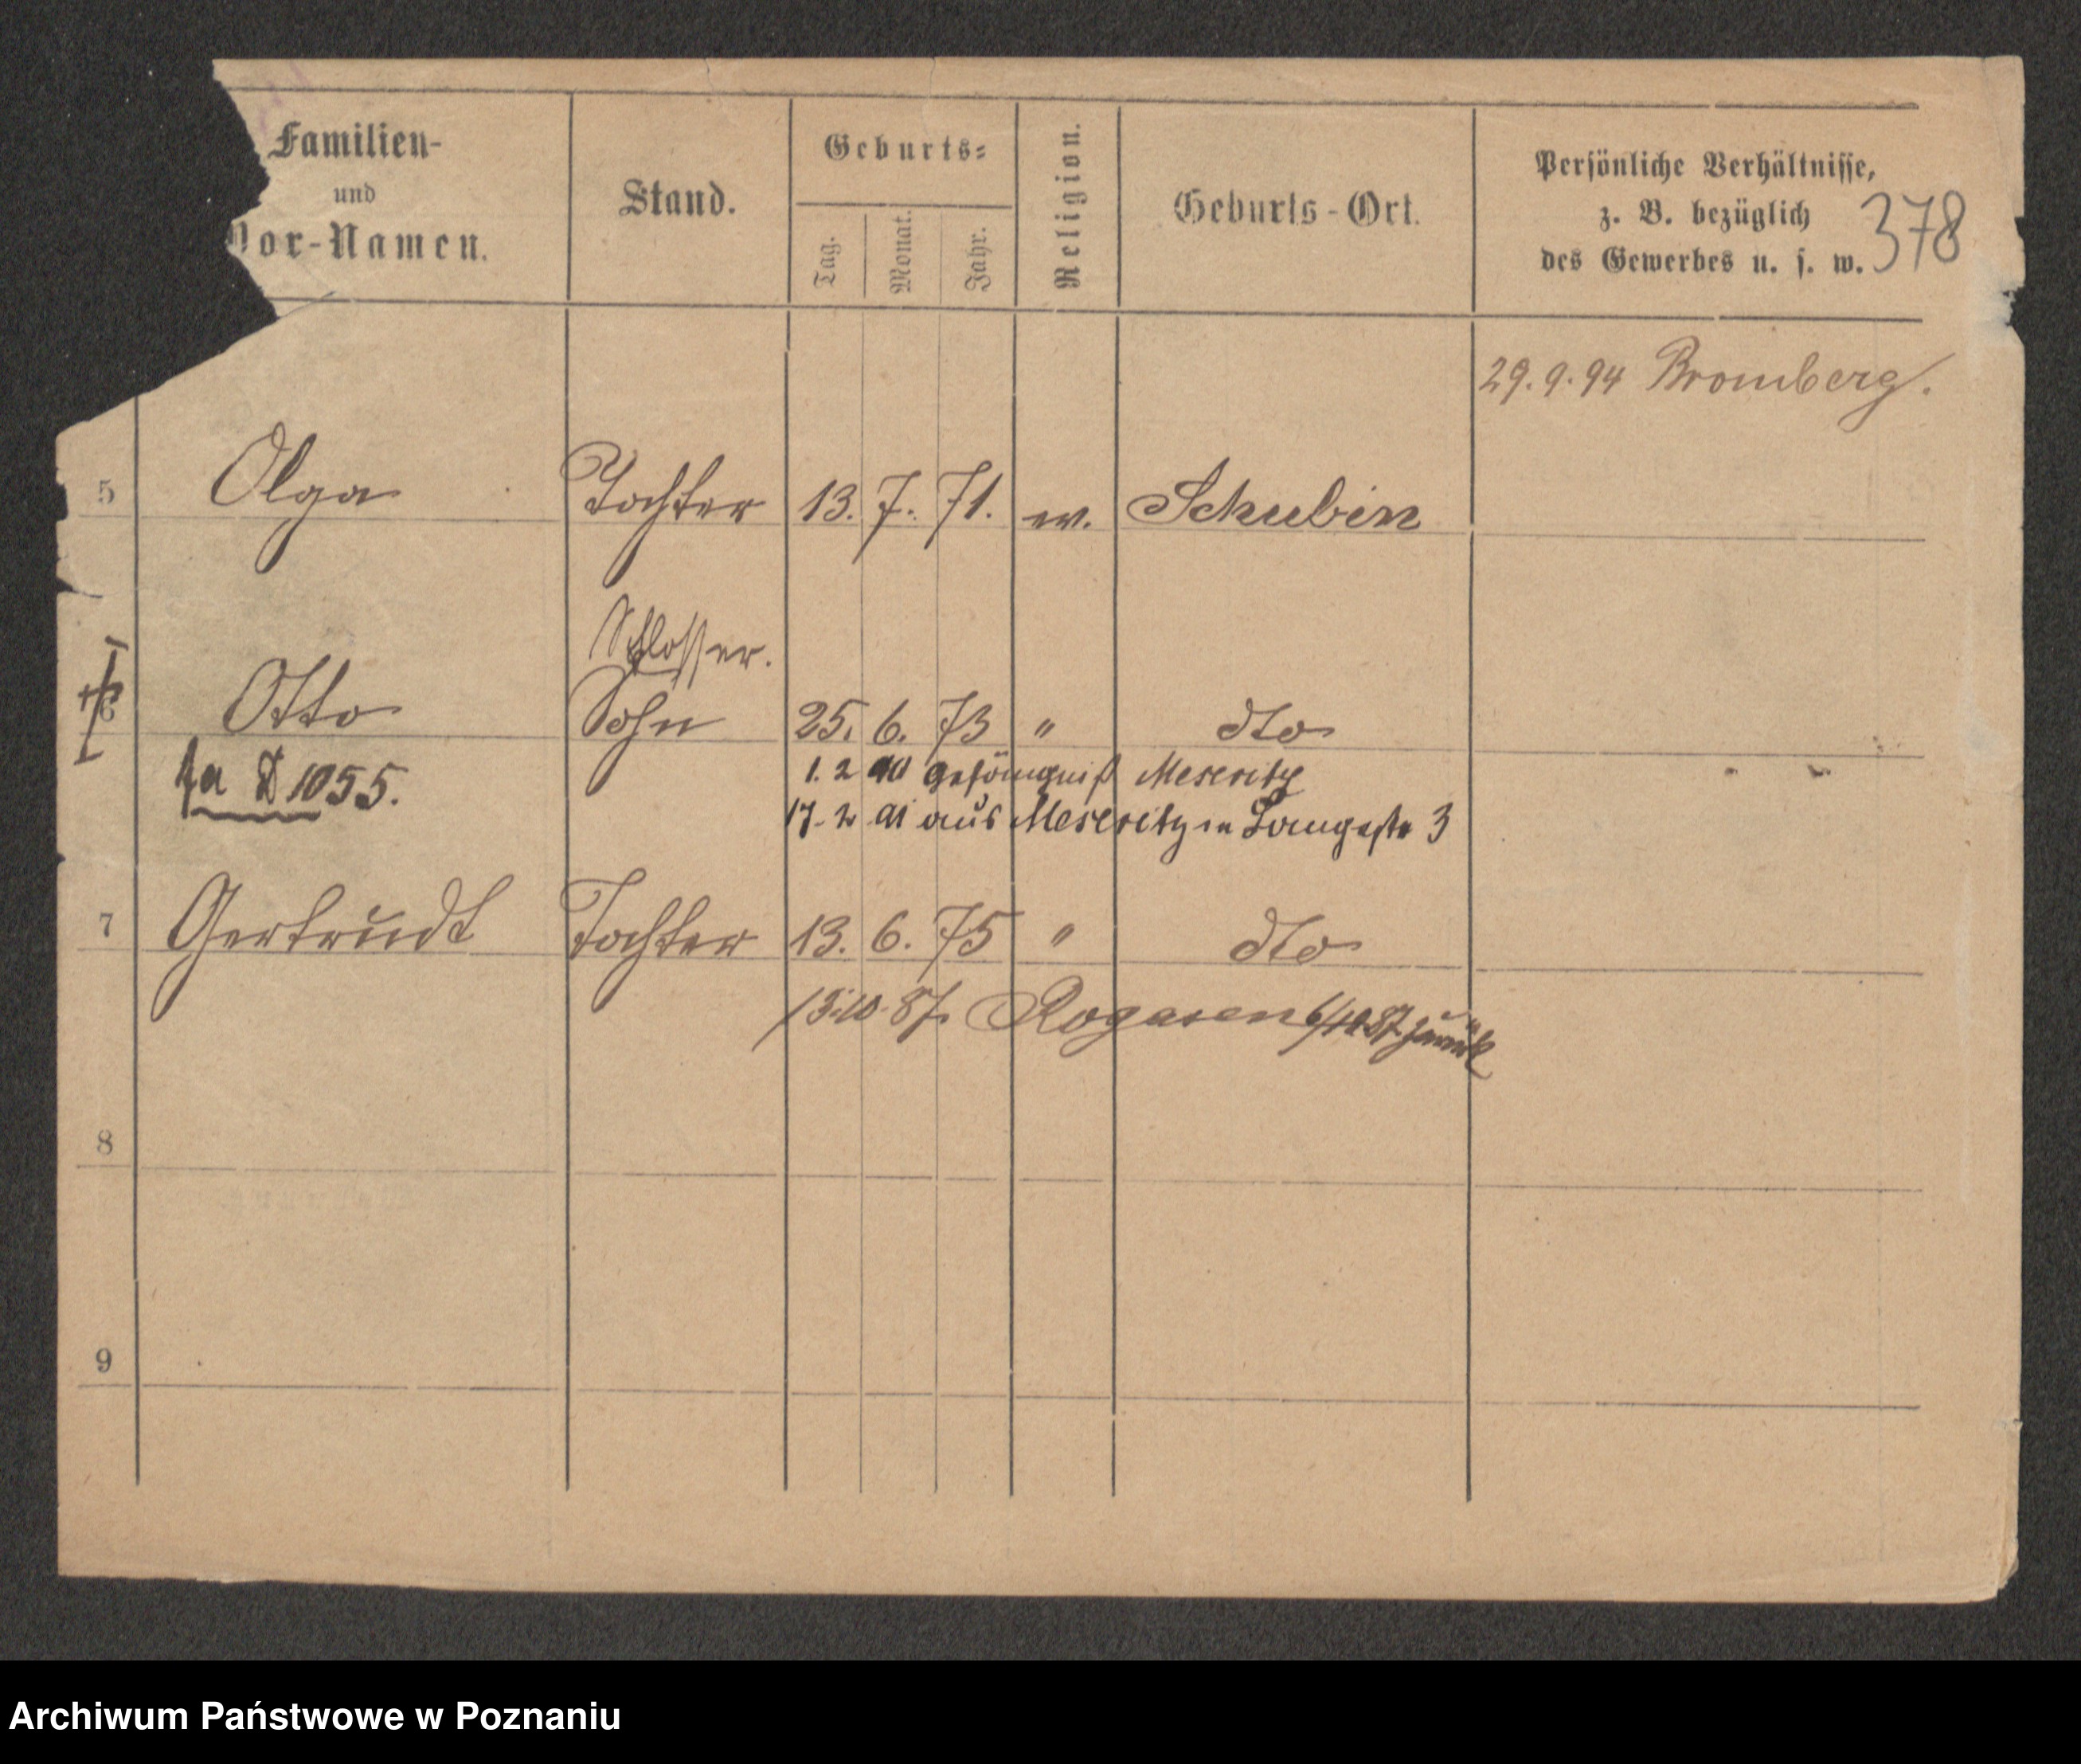 Familien-
und
Vor-Namen.
Stand.
Geburts-
Tag.
Monat.
Jahr.
Religion.
Geburts-Ort.
Persönliche Verhältnisse,
z. B. bezüglich
des Gewerbes u. s. w.
378
29.9.94 Bromberg.
5 Olga Tochter 13. 7. 71. ev. Schubin
Schlosser.
6 Otto Sohn 25. 6. 73 " dto
1. 2 Gefängniß Meseritz
Ja D 1055.
17. 2 91 aus Meseritz n Langestr 3
7 Gertrudt Tochter 13. 6. 75 " dto
13.10.87. Rogasen zurück
8
9
Archiwum Państwowe w Poznaniu